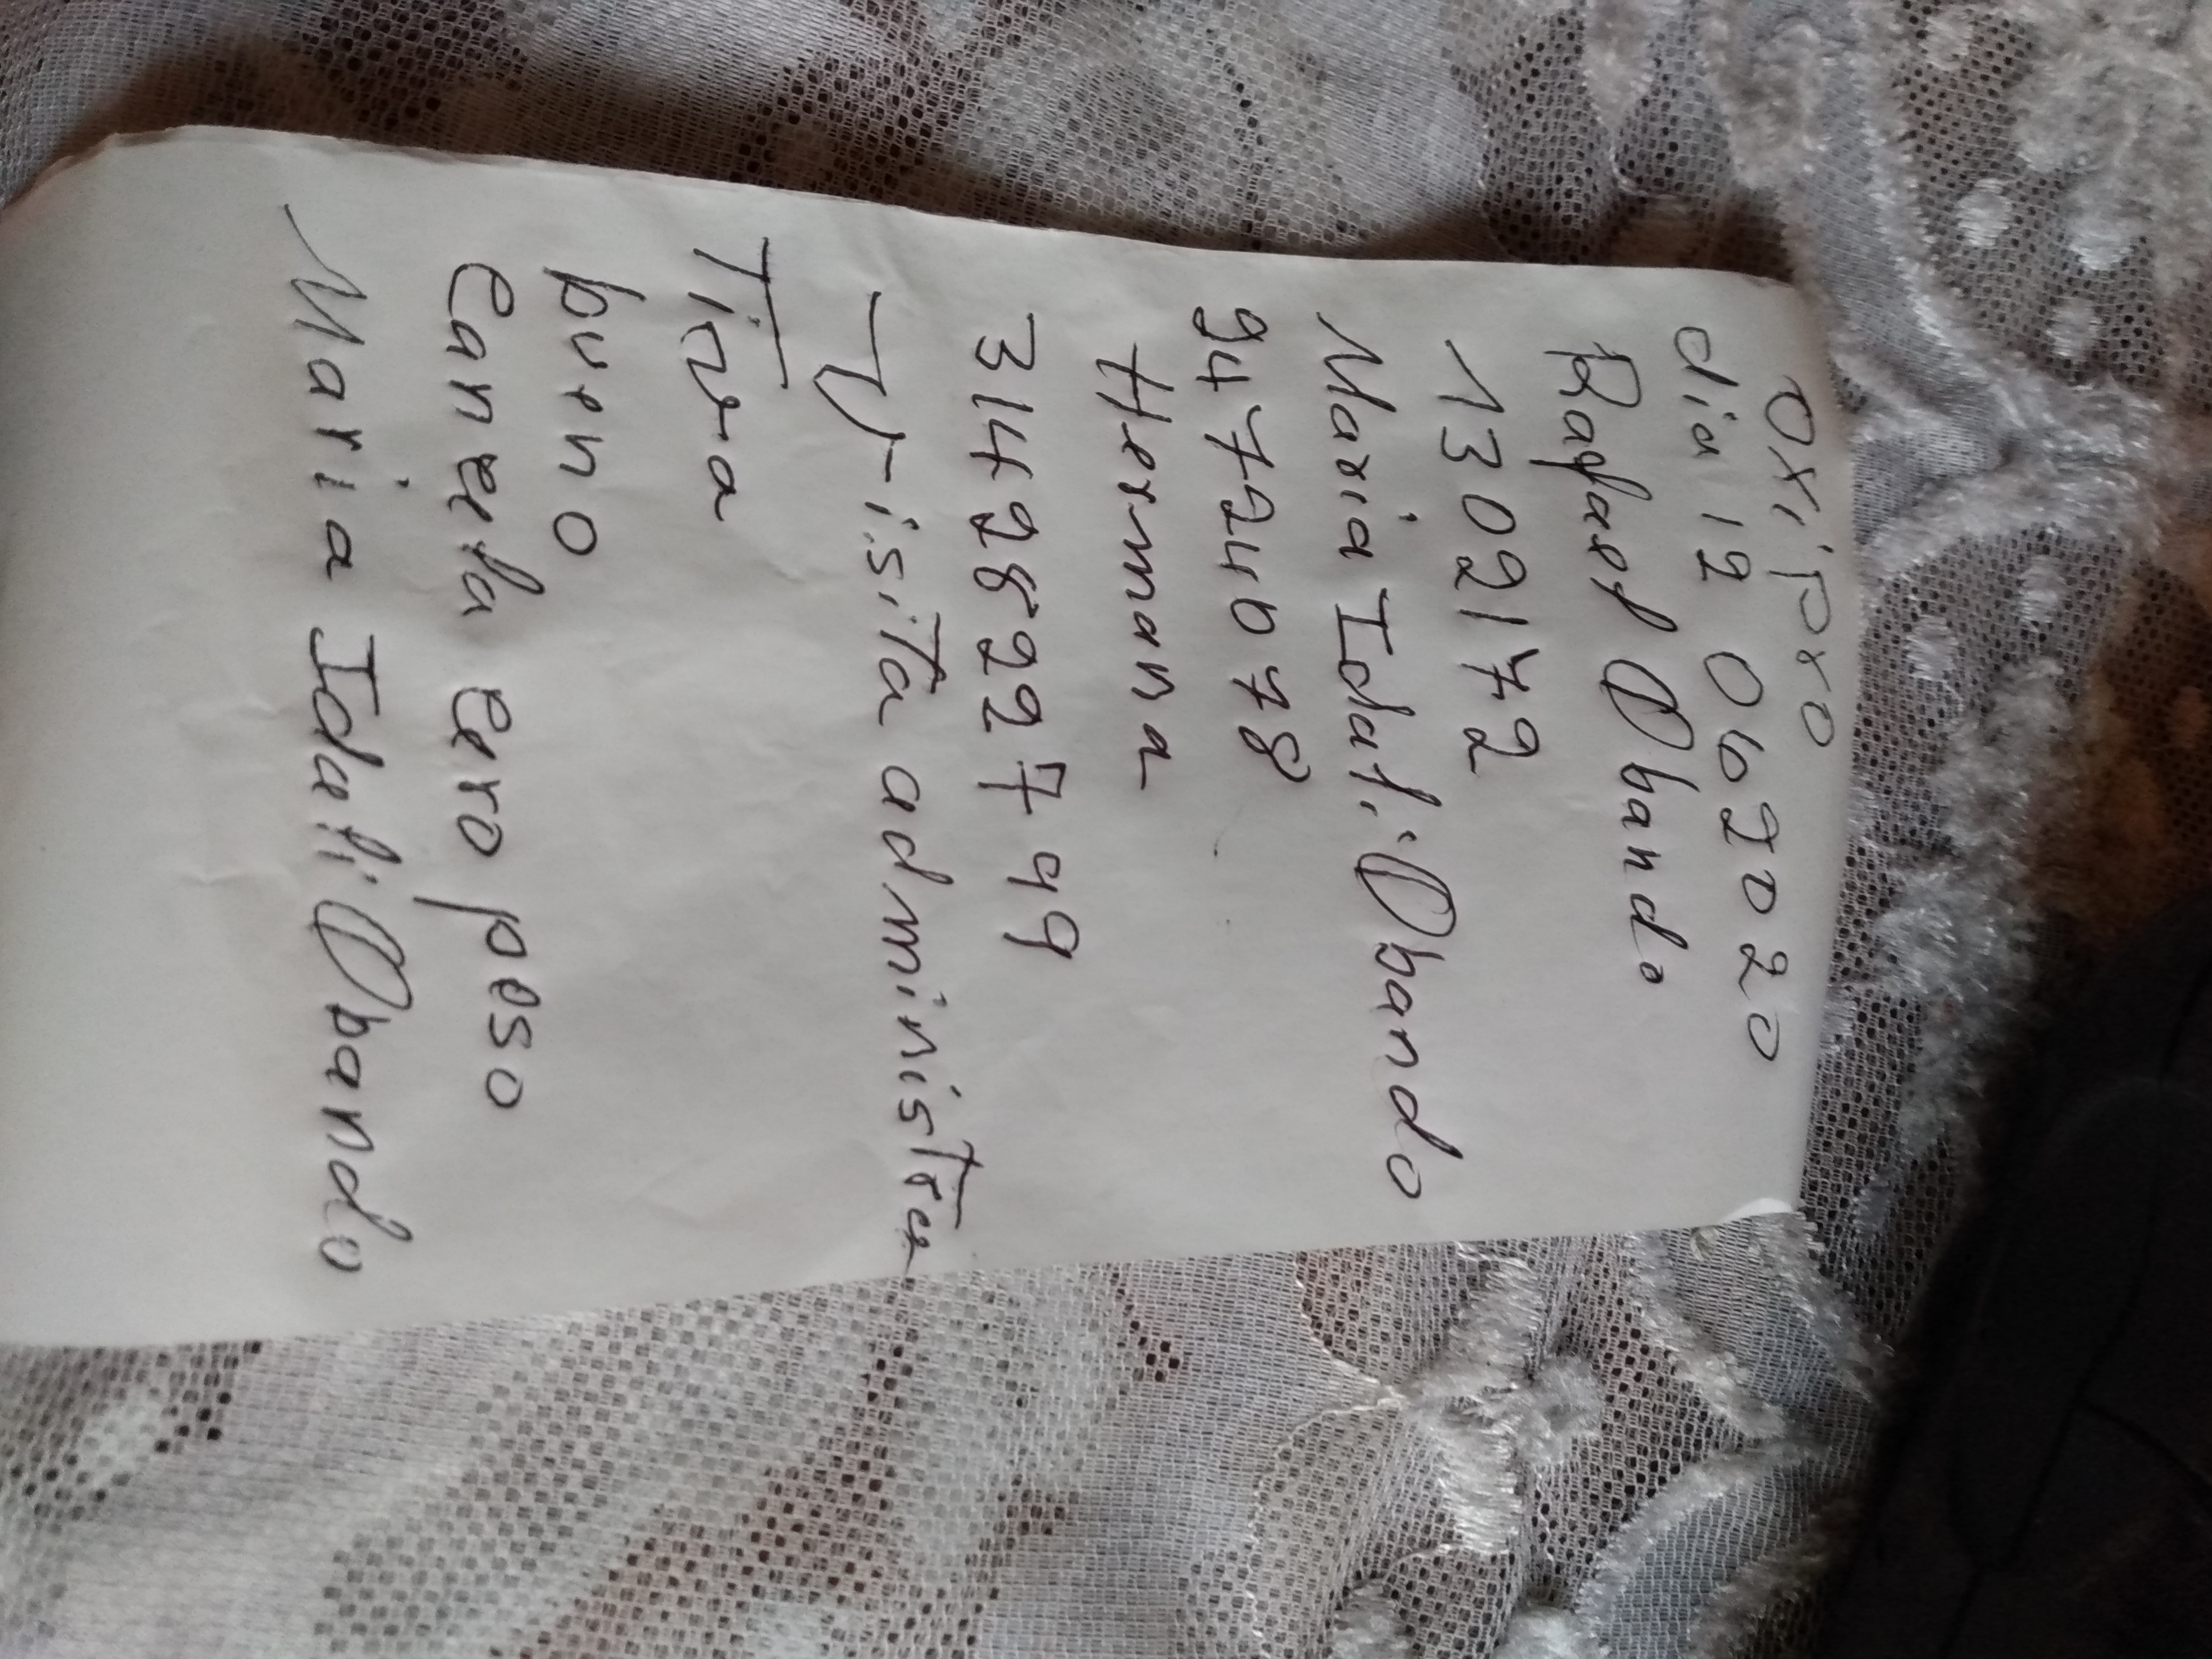 oxipro
dia 12 06 2020
Rafael Obando
1302172
Maria Idali Obando
94724078
Hermana
3142822749
Visita administra
Tiva
bueno
Canecla cero peso
Maria Idali Obando